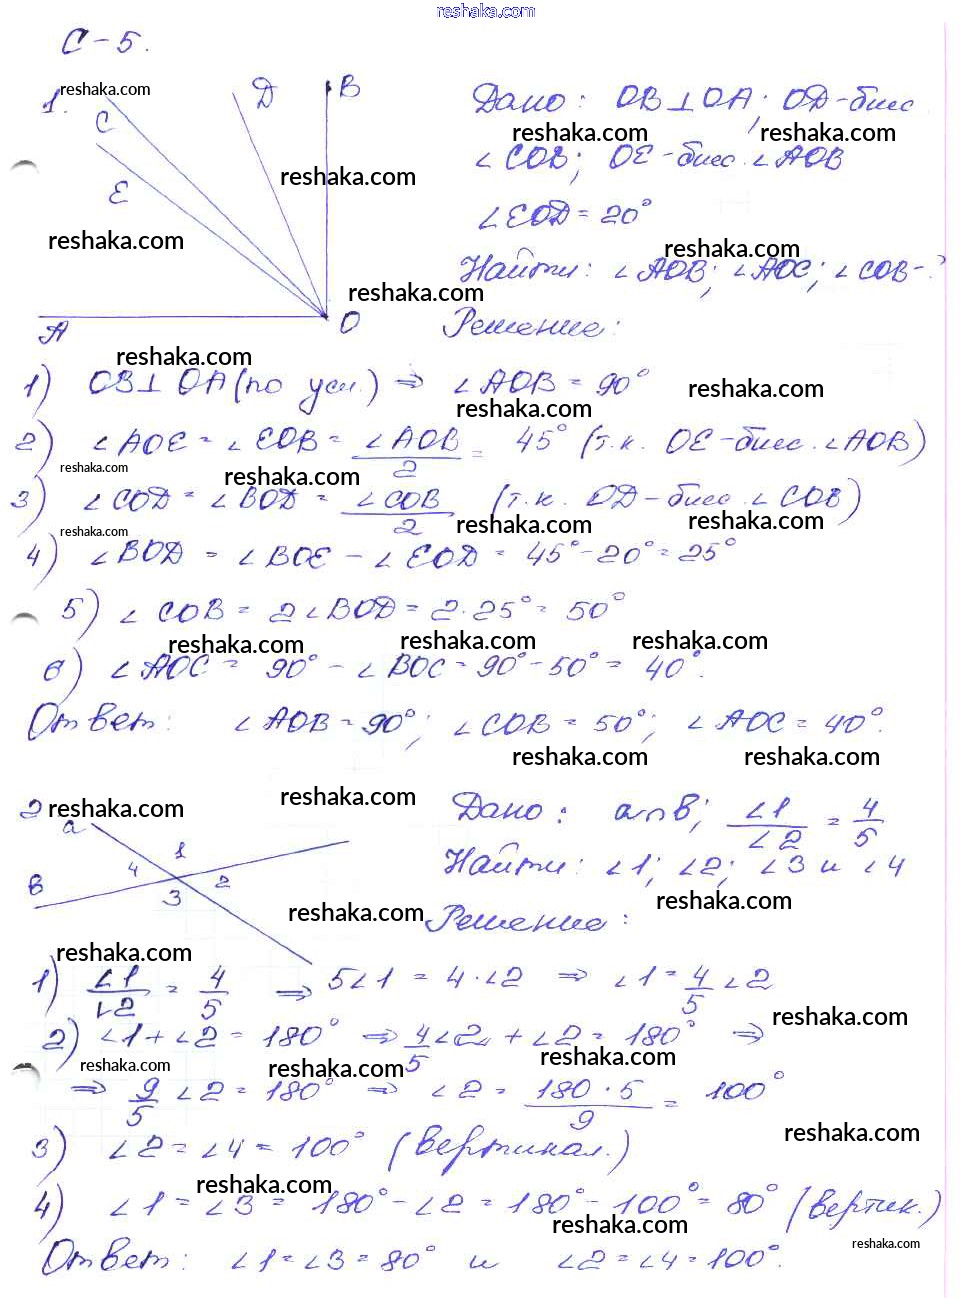 reshaka.com
С-5.
1. C E D B A O
Дано: OB⊥OA; OD-бисс
∠COB; OE-бисс. ∠AOB
∠EOD = 20°
Найти: ∠AOB; ∠AOC; ∠COB-?
Решение:
1) OB⊥OA (по усл.) ⇒ ∠AOB = 90°
2) ∠AOE = ∠EOB = ∠AOB/2 = 45° (т.к. OE-бисс. ∠AOB)
3) ∠COD = ∠BOD = ∠COB/2 (т.к. OD-бисс. ∠COB)
4) ∠BOD = ∠BOE - ∠EOD = 45°-20°=25°
5) ∠COB = 2∠BOD = 2·25° = 50°
6) ∠AOC = 90° - ∠BOC = 90°-50° = 40°.
Ответ: ∠AOB = 90°; ∠COB = 50°; ∠AOC = 40°.
2 a в 1 2 3 4
Дано: a∩в; ∠1/∠2 = 4/5
Найти: ∠1; ∠2; ∠3 и ∠4
Решение:
1) ∠1/∠2 = 4/5 ⇒ 5∠1 = 4·∠2 ⇒ ∠1 = 4/5 ∠2
2) ∠1+∠2 = 180° ⇒ 4/5∠2 + ∠2 = 180° ⇒
⇒ 9/5 ∠2 = 180° ⇒ ∠2 = 180·5/9 = 100°
3) ∠2 = ∠4 = 100° (вертикал.)
4) ∠1 = ∠3 = 180°-∠2 = 180°-100° = 80° (вертик.)
Ответ: ∠1=∠3=80° и ∠2=∠4=100°.